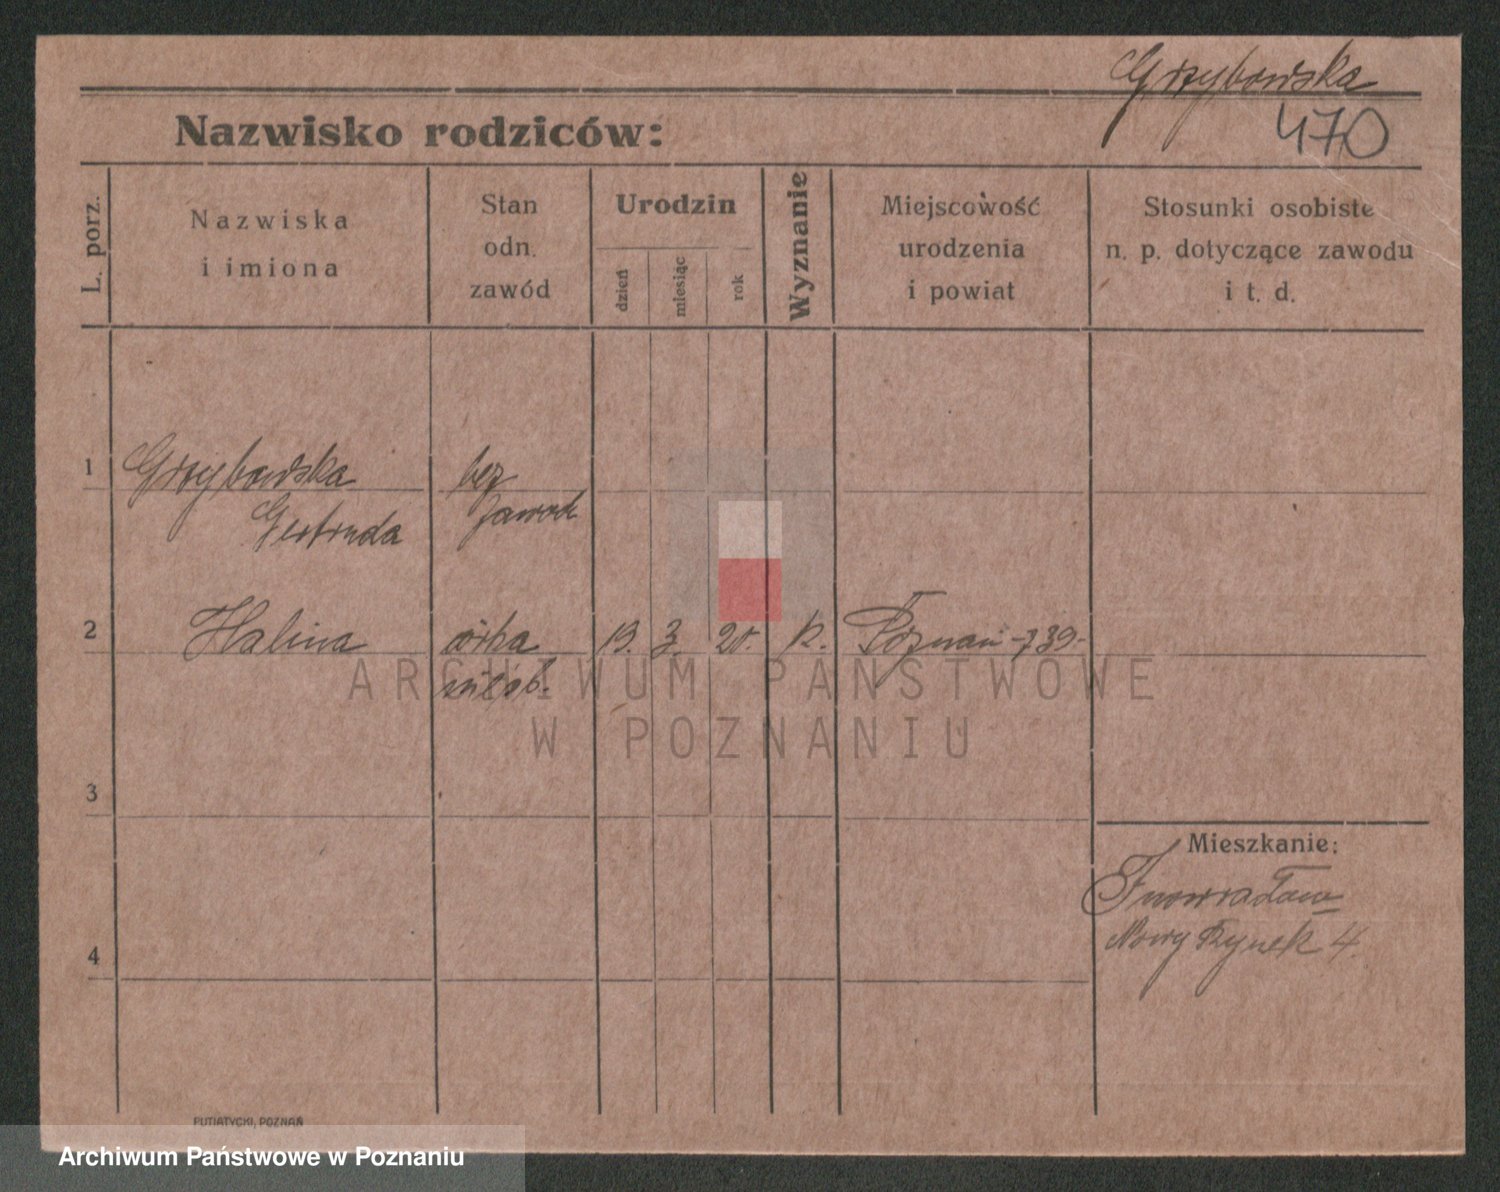 Grzybowska
470
Nazwisko rodziców:
L. porz.
Nazwiska
i imiona
Stan
odn.
zawód
Urodzin
dzień
miesiąc
rok
Wyznanie
Miejscowość
urodzenia
i powiat
Stosunki osobiste
n. p. dotyczące zawodu
i t. d.
1 Grzybowska bez
Gertruda zawod
2 Halina córka 19. 3. 20. k. Poznań - 739 -
nieśl.
ARCHIWUM PAŃSTWOWE
W POZNANIU
3
Mieszkanie:
Inowrocław
Nowy Rynek 4.
4
PUTIATYCKI, POZNAŃ
Archiwum Państwowe w Poznaniu